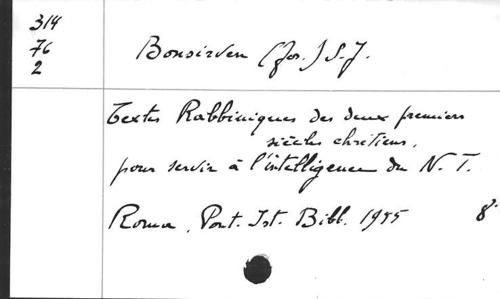 314
76
2
Bonsirven (Jos.) S.J.
Textes Rabbiniques des deux premiers
siècles chrétiens,
pour servir à l'intelligence du N. T.
Roma, Pont. Ist. Bibl. 1955 8°